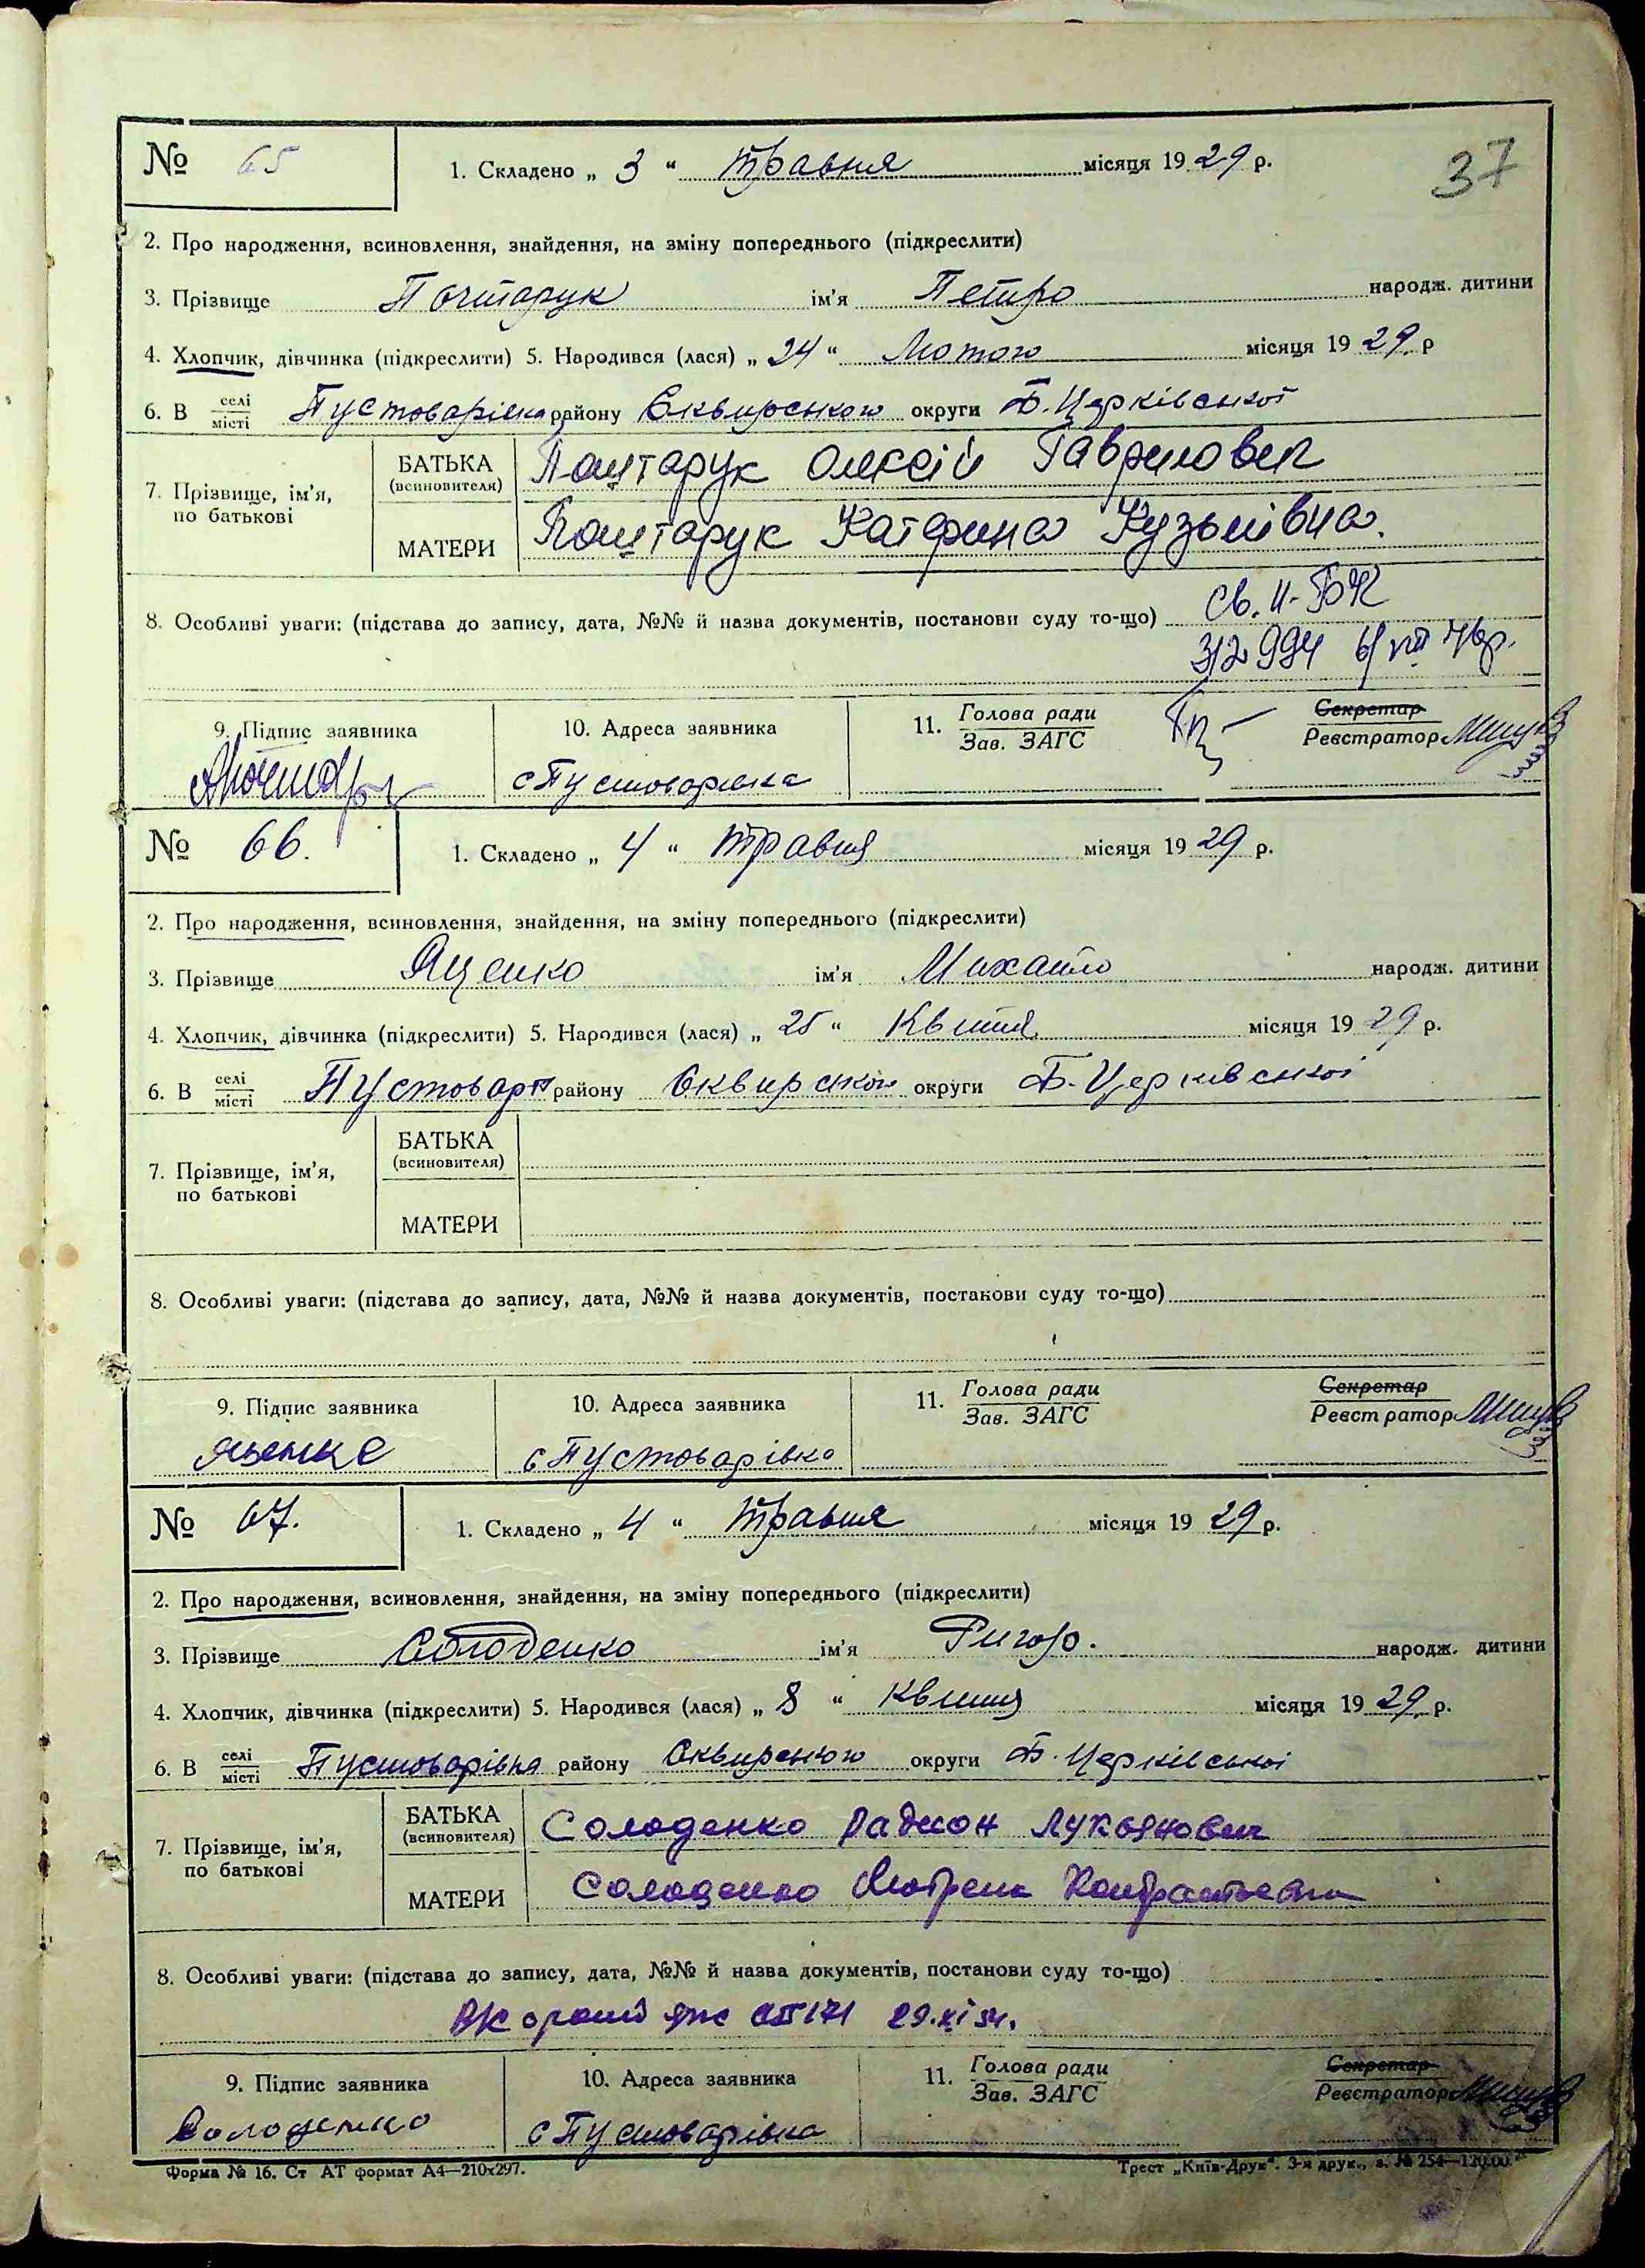 37
№ 65
1. Складено „ 3 “ травня місяця 1929 р.
2. Про народження, всиновлення, знайдення, на зміну попереднього (підкреслити)
3. Прізвище Почтарук ім'я Петро народж. дитини
4. Хлопчик, дівчинка (підкреслити) 5. Народився (лася) „ 24 “ Лютого місяця 1929 р
6. В селі місті Пустоварівка району Сквирського округи Б. Церківської
7. Прізвище, ім'я, по батькові
БАТЬКА (всиновителя) Поштарук Олексій Гаврилович
МАТЕРИ Поштарук Катерина Кузьмівна.
8. Особливі уваги: (підстава до запису, дата, №№ й назва документів, постанови суду то-що) св. II-БЖ
312994
9. Підпис заявника
10. Адреса заявника
с Пустоварівка
11. Голова ради
Зав. ЗАГС
Секретар
Реєстратор
№ 66.
1. Складено „ 4 “ травня місяця 1929 р.
2. Про народження, всиновлення, знайдення, на зміну попереднього (підкреслити)
3. Прізвище Яценко ім'я Михайло народж. дитини
4. Хлопчик, дівчинка (підкреслити) 5. Народився (лася) „ 25 “ Квітня місяця 1929 р.
6. В селі місті Пустовар району Сквирського округи Б. Церківської
7. Прізвище, ім'я, по батькові
БАТЬКА (всиновителя)
МАТЕРИ
8. Особливі уваги: (підстава до запису, дата, №№ й назва документів, постанови суду то-що)
9. Підпис заявника
10. Адреса заявника
с Пустоварівка
11. Голова ради
Зав. ЗАГС
Секретар
Реєстратор
№ 67.
1. Складено „ 4 “ травня місяця 1929 р.
2. Про народження, всиновлення, знайдення, на зміну попереднього (підкреслити)
3. Прізвище Солоденко ім'я Григор. народж. дитини
4. Хлопчик, дівчинка (підкреслити) 5. Народився (лася) „ 8 “ Квітня місяця 1929 р.
6. В селі місті Пустоварівка району Сквирського округи Б. Церківської
7. Прізвище, ім'я, по батькові
БАТЬКА (всиновителя) Солоденко Радион Лукьянович
МАТЕРИ Солоденко Мотрена Кондратьевна
8. Особливі уваги: (підстава до запису, дата, №№ й назва документів, постанови суду то-що)
29.XI 54.
9. Підпис заявника
Солоденко
10. Адреса заявника
с Пустоварівка
11. Голова ради
Зав. ЗАГС
Секретар
Реєстратор
Форма № 16. Ст АТ формат А4—210х297.
Трест „Київ-Друк“. 3-я друк., з. № 254—120.00